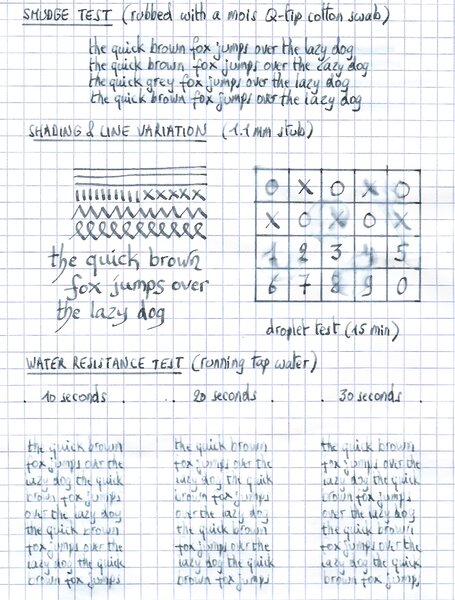 SMUDGE TEST (rubbed with a mois Q-tip cotton swab)
the quick brown fox jumps over the lazy dog
the quick brown fox jumps over the lazy dog
the quick grey fox jumps over the lazy dog
the quick brown fox jumps over the lazy dog
SHADING & LINE VARIATION (1.1 mm stub)
IIIIIIIIIIXXXXX
the quick brown
fox jumps over
the lazy dog
O X O X O
X O X O X
1 2 3 4 5
6 7 8 9 0
droplet test (15 min)
WATER RESISTANCE TEST (running tap water)
. 10 seconds . 20 seconds . 30 seconds .
the quick brown
fox jumps over the
lazy dog the quick
brown fox jumps
over the lazy dog
the quick brown
fox jumps over the
lazy dog the quick
brown fox jumps
the quick brown
fox jumps over the
lazy dog the quick
brown fox jumps
over the lazy dog
the quick brown
fox jumps over the
lazy dog the quick
brown fox jumps
the quick brown
fox jumps over the
lazy dog the quick
brown fox jumps
over the lazy dog
the quick brown
fox jumps over the
lazy dog the quick
brown fox jumps